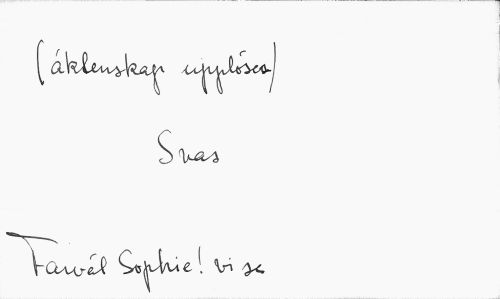 (äktenskap upplöses)
Svas
Farväl Sophie! vi se